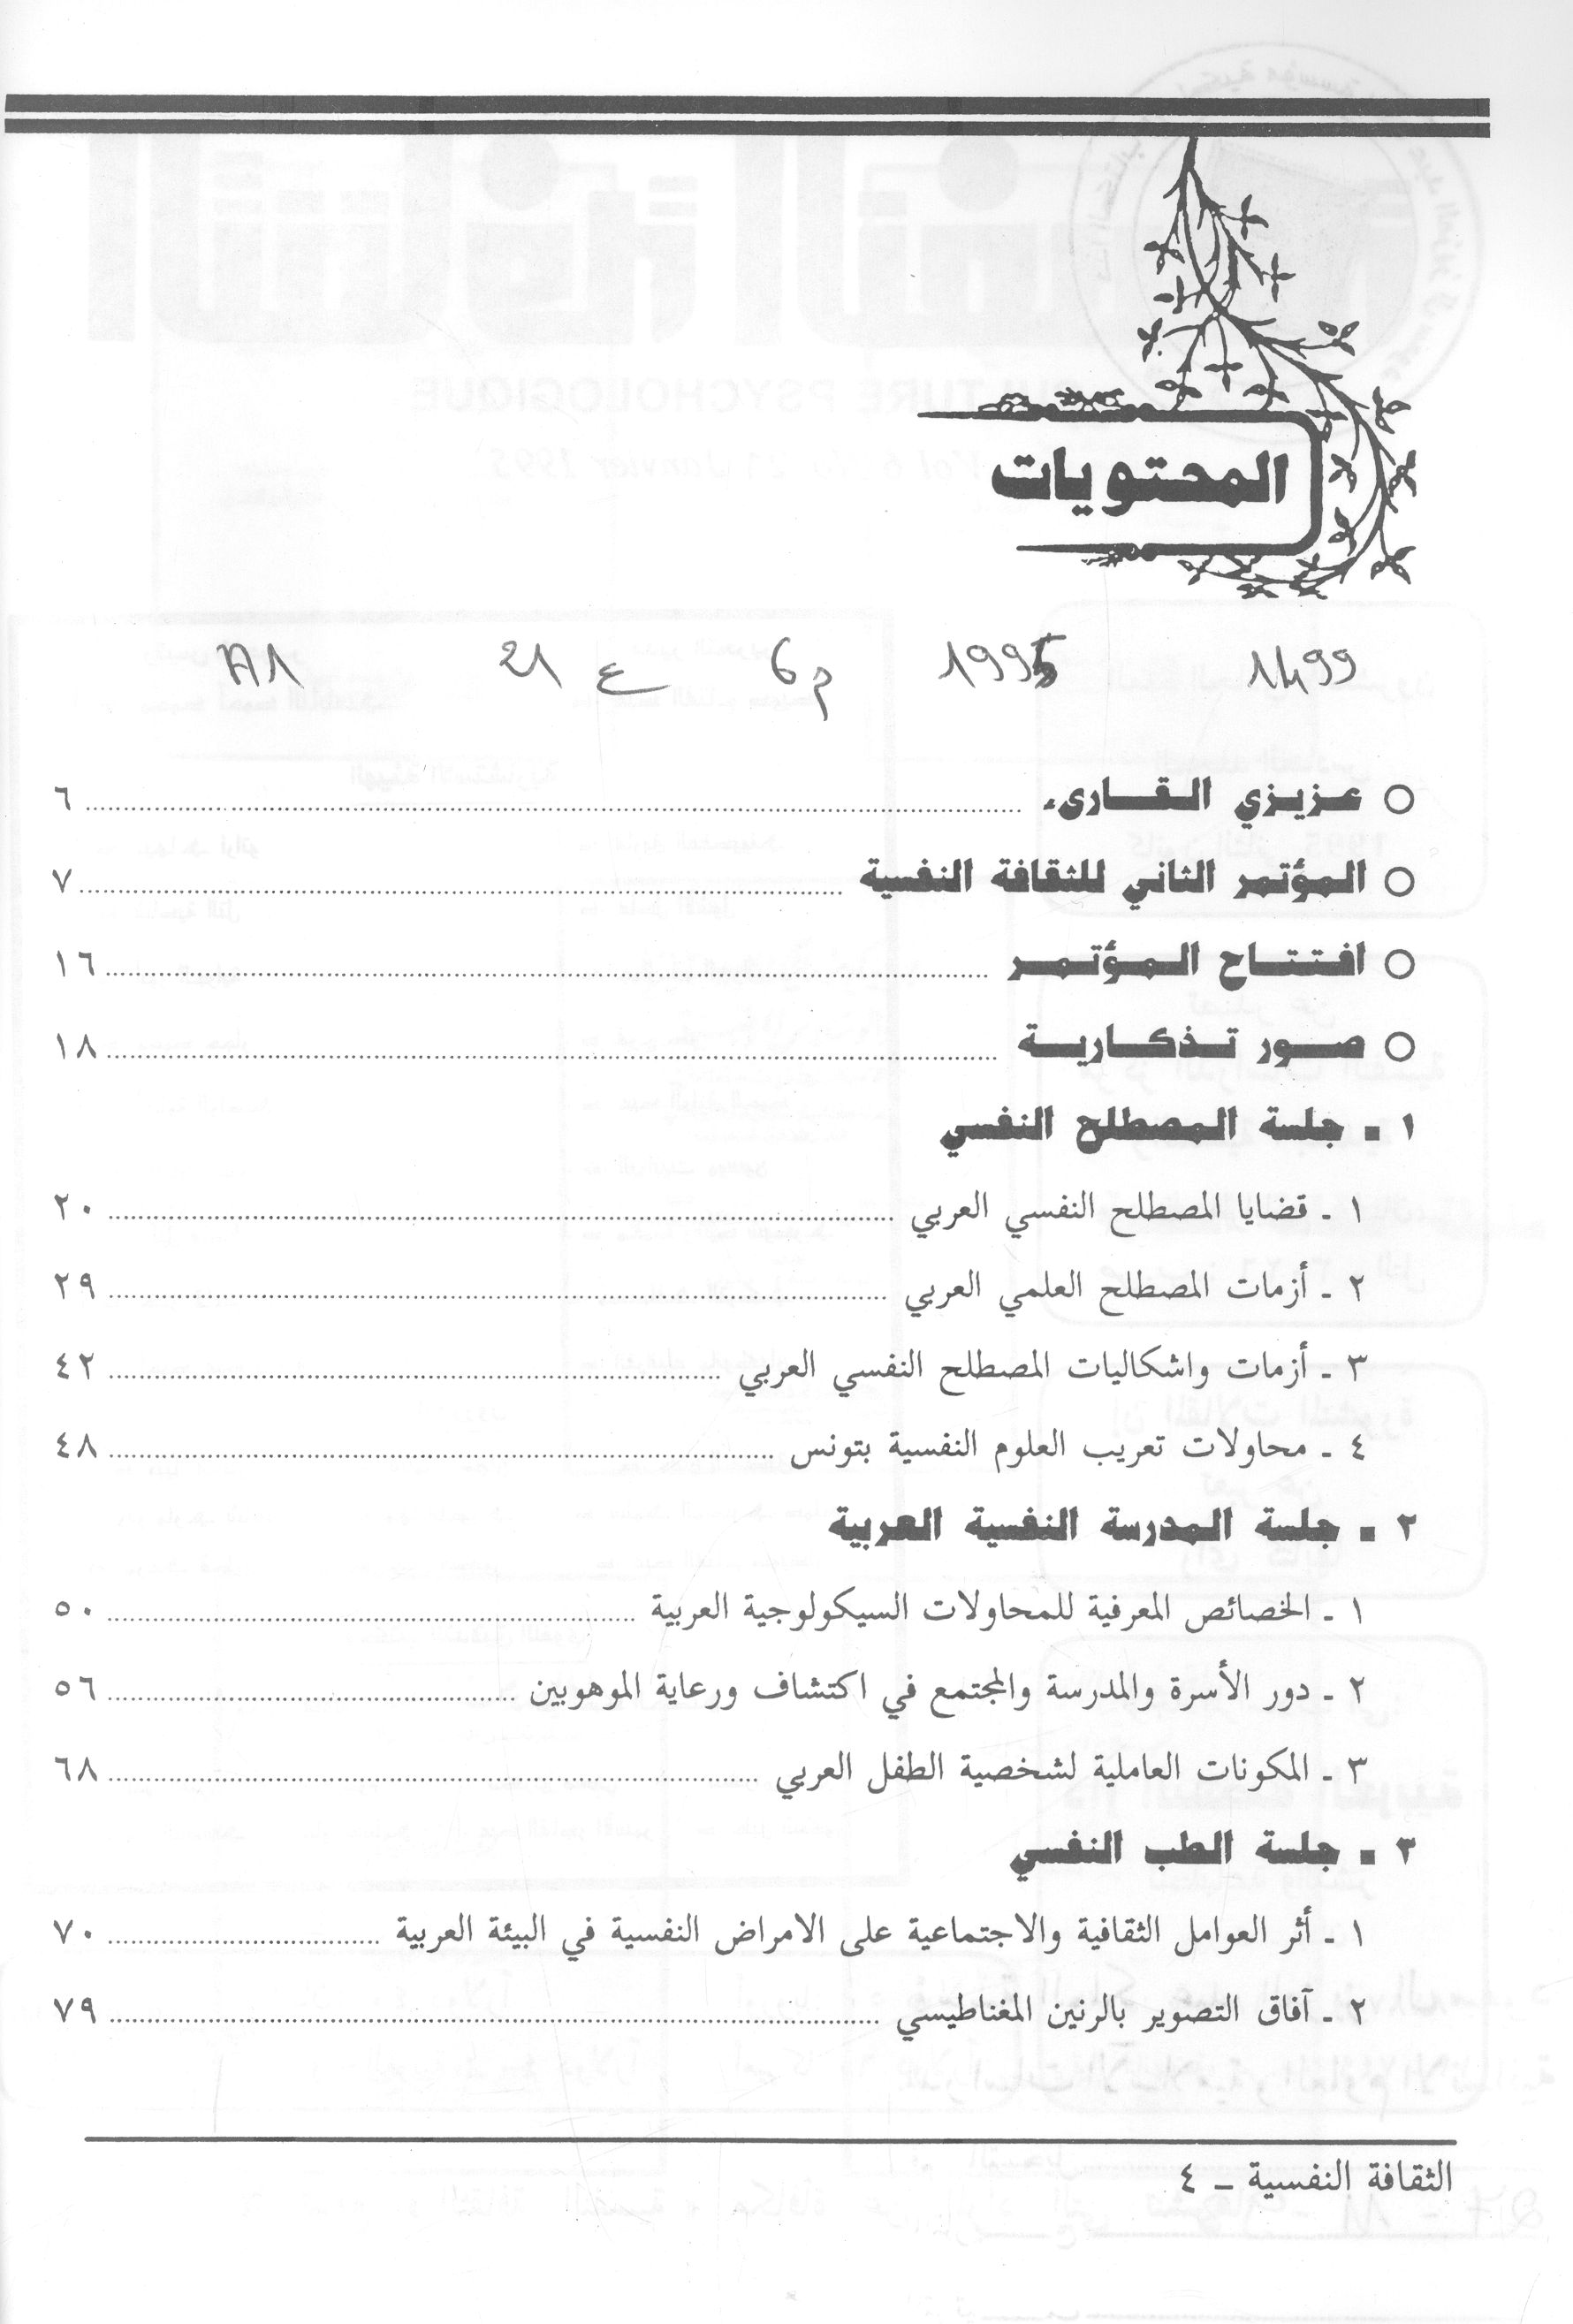 المحتويات
1499 1995 م 6 ع 21
○ عزيزي القارىء ٦
○ المؤتمر الثاني للثقافة النفسية ٧
○ افتتاح المؤتمر ١٦
○ صور تذكارية ١٨
١ - جلسة المصطلح النفسي
١ - قضايا المصطلح النفسي العربي ٢٠
٢ - أزمات المصطلح العلمي العربي ٢٩
٣ - أزمات واشكاليات المصطلح النفسي العربي ٤٢
٤ - محاولات تعريب العلوم النفسية بتونس ٤٨
٢ - جلسة المدرسة النفسية العربية
١ - الخصائص المعرفية للمحاولات السيكولوجية العربية ٥٠
٢ - دور الأسرة والمدرسة والمجتمع في اكتشاف ورعاية الموهوبين ٥٦
٣ - المكونات العاملية لشخصية الطفل العربي ٦٨
٣ - جلسة الطب النفسي
١ - أثر العوامل الثقافية والاجتماعية على الامراض النفسية في البيئة العربية ٧٠
٢ - آفاق التصوير بالرنين المغناطيسي ٧٩
الثقافة النفسية - ٤